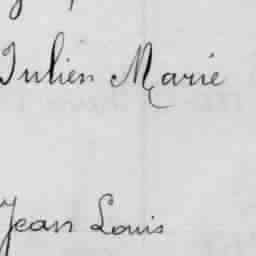 Julien Marie
Jean Louis